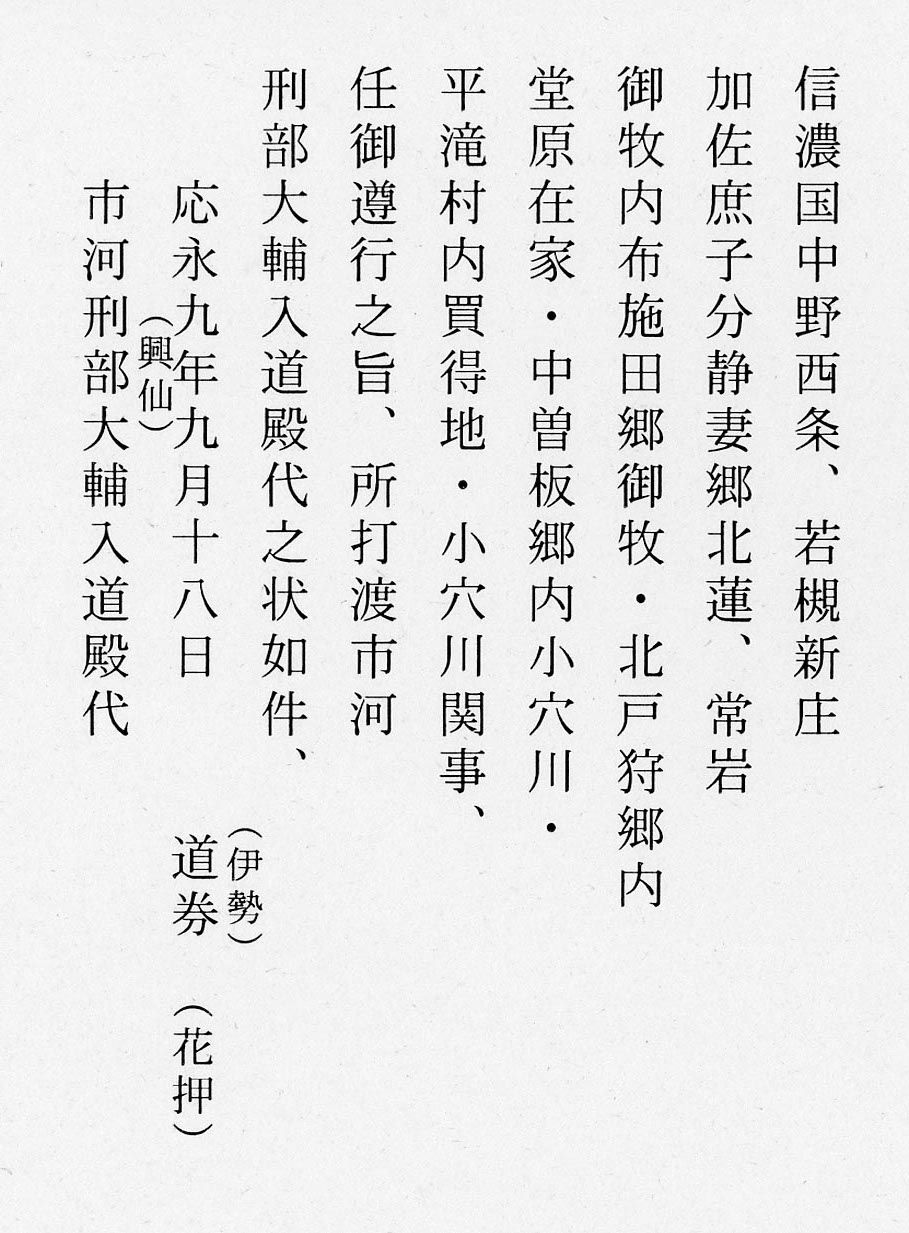 信濃国中野西条、若槻新庄
加佐庶子分静妻郷北蓮、常岩
御牧内布施田郷御牧・北戸狩郷内
堂原在家・中曽板郷内小穴川・
平滝村内買得地・小穴川関事、
任御遵行之旨、所打渡市河
刑部大輔入道殿代之状如件、
応永九年九月十八日　　（伊勢）道券　（花押）
（興仙）
市河刑部大輔入道殿代